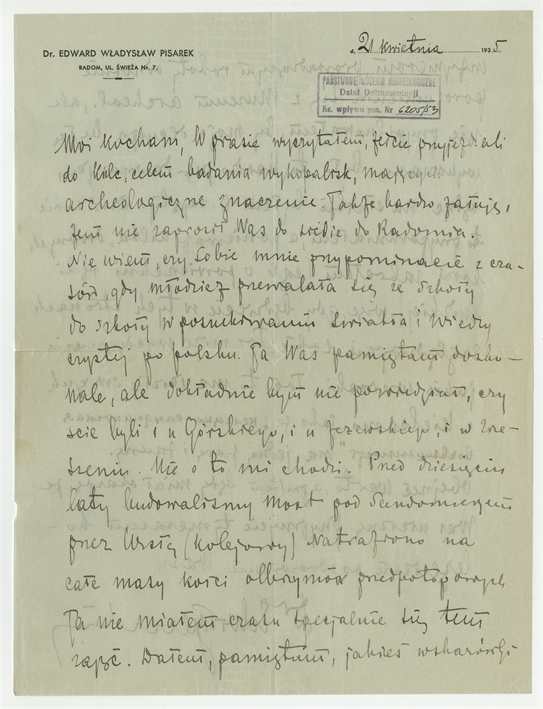 Dr. EDWARD WŁADYSŁAW PISAREK
RADOM, UL. ŚWIEŻA Nr. 7.
d. 21 kwietnia 1935
PAŃSTWOWE MUZEUM ARCHEOLOGICZNE
Dział Dokumentacji
Ks. wpływu poz. Nr 6205/53
Moi Kochani, W prasie wyczytałem, żeście przyjechali
do Kielc, celem badania wykopalisk, mających
archeologiczne znaczenie. Także bardzo żałuję,
żem nie zaprosił Was do siebie do Radomia.
Nie wiem, czy sobie mnie przypominacie z cza-
sów, gdy młodzież przewalała się ze szkoły
do szkoły w poszukiwaniu światła i wiedzy
czystej po polsku. Ja Was pamiętam dosko-
nale, ale dokładnie bym nie powiedział, czy
ście byli i u Górskiego, i u Jezewskiego, i w Wrze-
szeniu. Nie o to mi chodzi. Przed dziesięciu
laty budowaliśmy most pod Sandomierzem
przez Wisłę (kolejowy) Natrafiono na
całe masy kości olbrzymów przedpotopowych
Ja nie miałem czasu specjalnie się tem
zająć. Dałem, pamiętam, jakieś wskazówki